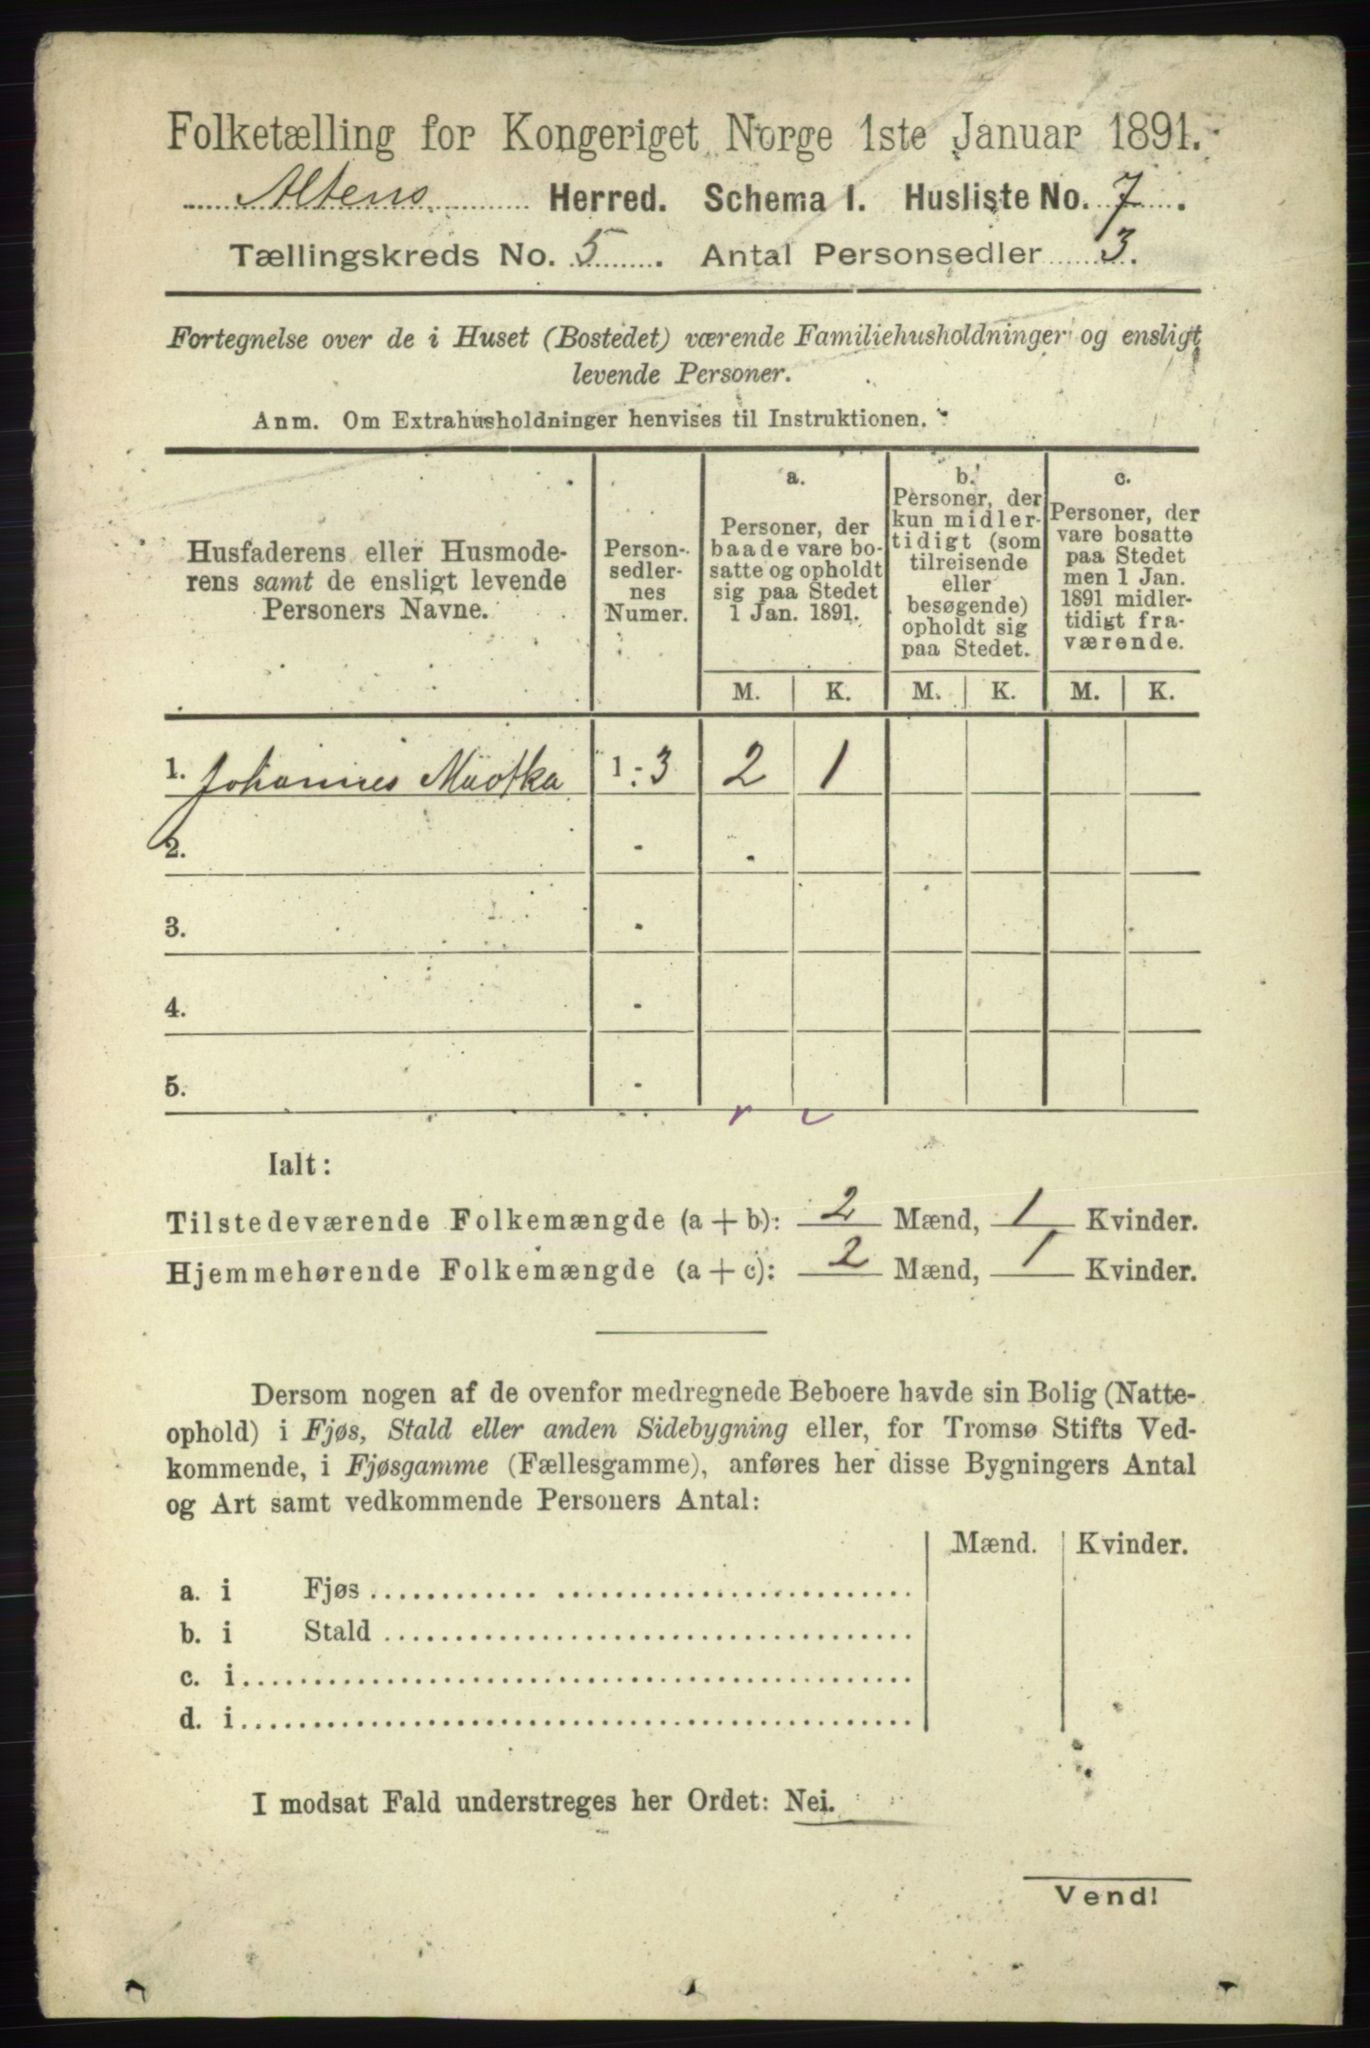 Folketælling for Kongeriget Norge 1ste Januar 1891.
Altens Herred. Schema I. Husliste No. 7.
Tællingskreds No. 5. Antal Personsedler 3.
Fortegnelse over de i Huset (Bostedet) værende Familiehusholdninger og ensligt
levende Personer.
Anm. Om Extrahusholdninger henvises til Instruktionen.
Husfaderens eller Husmode-
rens samt de ensligt levende
Personers Navne.
Person-
sedler-
nes
Numer.
a.
Personer, der
baade vare bo-
satte og opholdt
sig paa Stedet
1 Jan. 1891.
b.
Personer, der
kun midler-
tidigt (som
tilreisende
eller
besøgende)
opholdt sig
paa Stedet.
c.
Personer, der
vare bosatte
paa Stedet
men 1 Jan.
1891 midler-
tidigt fra-
værende.
M. K. M. K. M. K.
1. Johannes Muotka 1-3 2 1
2. -
3. -
4. -
5. -
Ialt:
Tilstedeværende Folkemængde (a + b): 2 Mænd, 1 Kvinder.
Hjemmehørende Folkemængde (a + c): 2 Mænd, 1 Kvinder.
Dersom nogen af de ovenfor medregnede Beboere havde sin Bolig (Natte-
ophold) i Fjøs, Stald eller anden Sidebygning eller, for Tromsø Stifts Ved-
kommende, i Fjøsgamme (Fællesgamme), anføres her disse Bygningers Antal
og Art samt vedkommende Personers Antal:
Mænd. Kvinder.
a. i Fjøs
b. i Stald
c. i
d. i
I modsat Fald understreges her Ordet: Nei.
Vend!